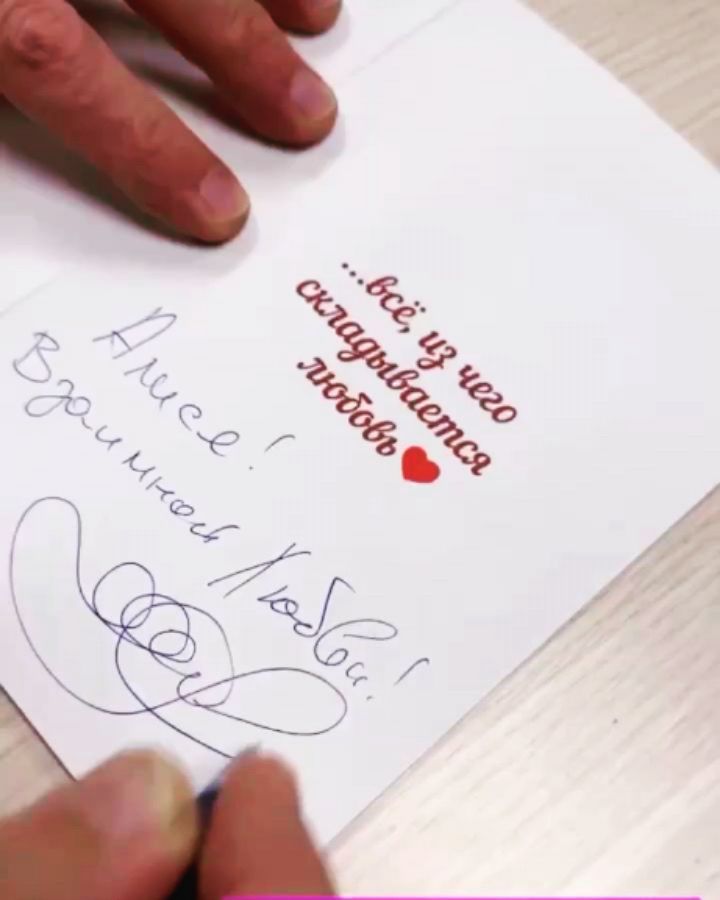 ...всё, из чего
складывается
любовь
Алисе!
Взаимной Любви!